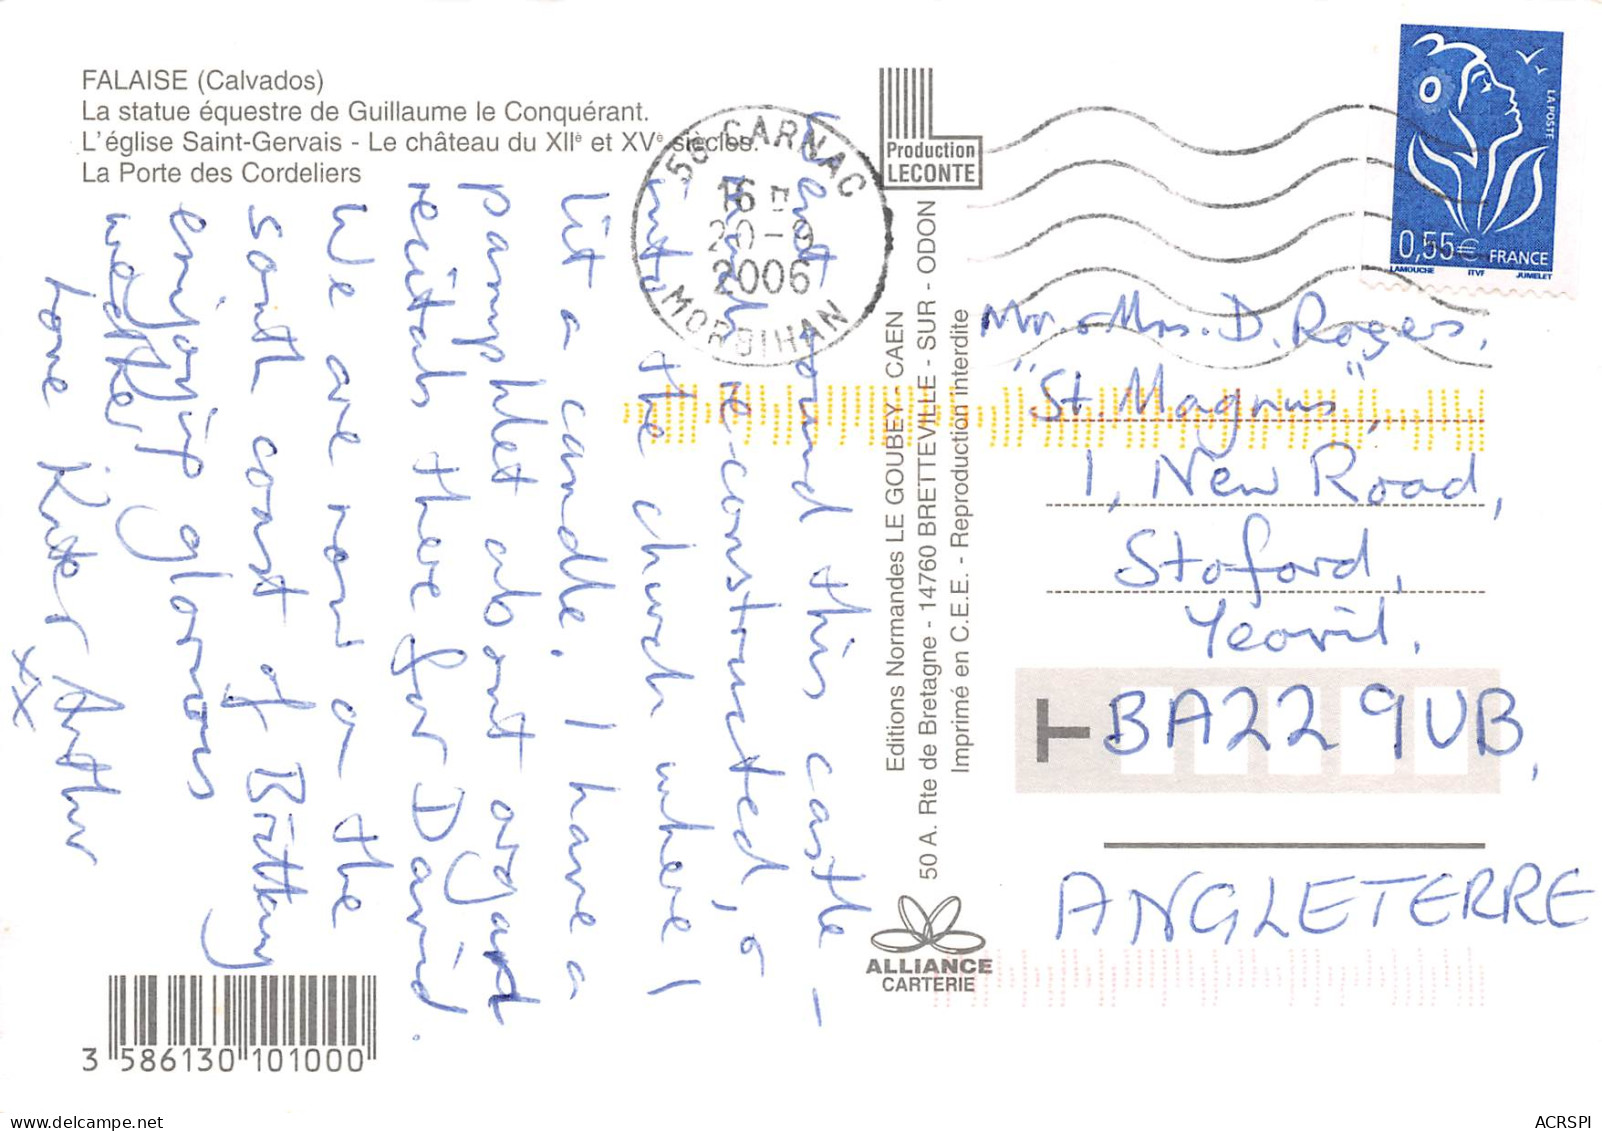 FALAISE (Calvados)
La statue équestre de Guillaume le Conquérant.
L'église Saint-Gervais - Le château du XIIè et XVè siècles.
La Porte des Cordeliers
Went round this castle -
much re-constructed, &
into the church where I
lit a candle. I have a
pamphlet about organ
recitals there for David.
We are now on the
south coast of Brittany
enjoying glorious
weather.
love Arthur
xx
56 CARNAC
16 H
20-9
2006
MORBIHAN
Production
LECONTE
Editions Normandes LE GOUBEY - CAEN
50 A. Rte de Bretagne - 14760 BRETTEVILLE - SUR - ODON
Imprimé en C.E.E. - Reproduction interdite
ALLIANCE
CARTERIE
LA POSTE
0,55€ FRANCE
LAMOUCHE ITVF JUMELET
Mr. & Mrs. D. Rogers,
"St. Magnus",
1, New Road,
Stoford,
Yeovil.
T BA22 9UB,
ANGLETERRE
3 586130 101000
delcampe.net
ACRSPI